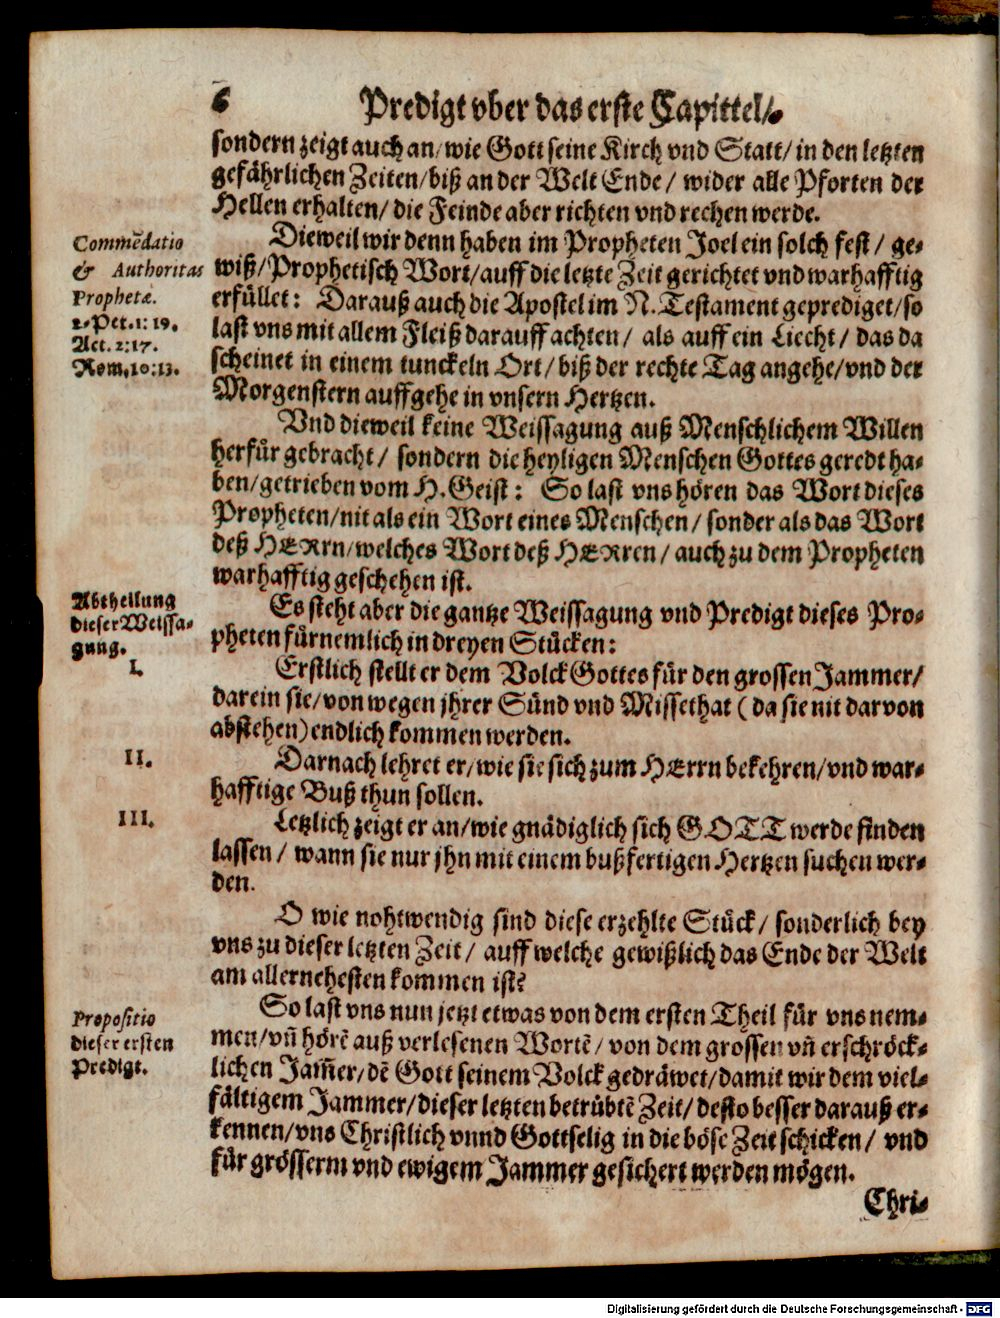 6 Predigt vber das erste Capittel/
sondern zeigt auch an/ wie Gott seine Kirch vnd Statt/ in den letzten
gefährlichen Zeiten/ biß an der Welt Ende/ wider alle Pforten der
Hellen erhalten/ die Feinde aber richten vnd rechen werde.
Commẽdatio
& Authoritas
Prophetæ.
2. Pet. 1: 19.
Act. 2: 17.
Rom. 10: 13.
Dieweil wir denn haben im Propheten Joel ein solch fest/ ge-
wiß/ Prophetisch Wort/ auff die letzte Zeit gerichtet vnd warhafftig
erfüllet: Darauß auch die Apostel im N. Testament geprediget/ so
last vns mit allem Fleiß darauff achten/ als auff ein Liecht/ das da
scheinet in einem tunckeln Ort/ biß der rechte Tag angehe/ vnd der
Morgenstern auffgehe in vnsern Hertzen.
Vnd dieweil keine Weissagung auß Menschlichem Willen
herfür gebracht/ sondern die heyligen Menschen Gottes geredt ha-
ben/ getrieben vom H. Geist: So last vns hören das Wort dieses
Propheten/ nit als ein Wort eines Menschen/ sonder als das Wort
deß HERrn/ welches Wort deß HERren/ auch zu dem Propheten
warhafftig geschehen ist.
Abtheilung
dieser Weissa-
gung.
Es steht aber die gantze Weissagung vnd Predigt dieses Pro-
pheten fürnemlich in dreyen Stücken:
I.
Erstlich stellt er dem Volck Gottes für den grossen Jammer/
darein sie/ von wegen jhrer Sünd vnd Missethat (da sie nit darvon
abstehen) endlich kommen werden.
II.
Darnach lehret er/ wie sie sich zum HErrn bekehren/ vnd war-
hafftige Buß thun sollen.
III.
Letzlich zeigt er an/ wie gnädiglich sich GOTT werde finden
lassen/ wann sie nur jhn mit einem bußfertigen Hertzen suchen wer-
den.
O wie nohtwendig sind diese erzehlte Stück/ sonderlich bey
vns zu dieser letzten Zeit/ auff welche gewißlich das Ende der Welt
am allernehesten kommen ist?
Propositio
dieser ersten
Predigt.
So last vns nun jetzt etwas von dem ersten Theil für vns nem-
men/ vñ hörẽ auß verlesenen Wortẽ/ von dem grossen vñ erschröck-
lichen Jam̃er/ dẽ Gott seinem Volck gedräwet/ damit wir dem viel-
fältigem Jammer/ dieser letzten betrübtẽ Zeit/ desto besser darauß er-
kennen/ vns Christlich vnnd Gottselig in die böse Zeit schicken/ vnd
für grösserm vnd ewigem Jammer gesichert werden mögen.
Chri-
Digitalisierung gefördert durch die Deutsche Forschungsgemeinschaft - DFG